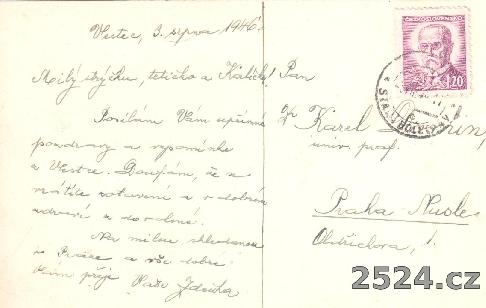 Vestec, 3. srpna 1946.
Milý strýčku, tetičko a Kaličko!
Posílám Vám upřímné
pozdravy a vzpomínku
z Vestce. Doufám, že se
vrátíte zotaveni a v dobrém
zdraví z dovolené.
Na milou shledanou
v Praze a vše dobré
Vám přeje Vaše Zdeňka.
ČESKOSLOVENSKO
1.20
Pan
Karel
univ. prof.
Praha Nusle
1.
2524.cz